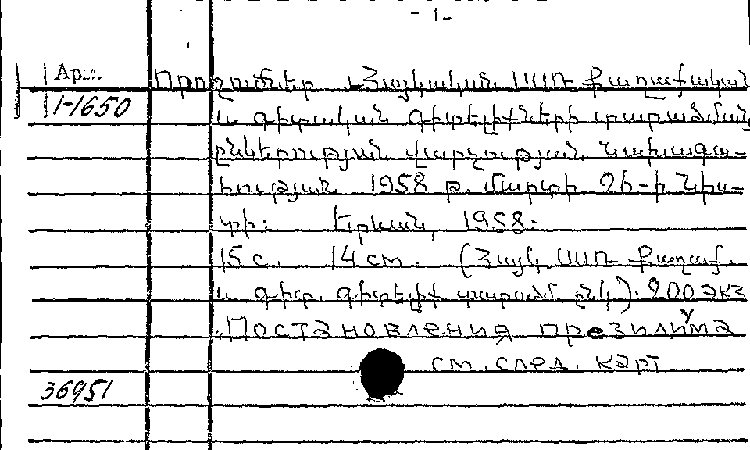 - 1 -
Арм. Որոշումներ Հայկական ՍՍՌ քաղաքական
1-1650 և գիտական գիտելիքների տարածման
ընկերության վարչության նախագա-
հության 1958 թ. մարտի 26-ի նիս-
տի: Երևան, 1958:
15 с. 14 см. (Հայկ. ՍՍՌ քաղաք.
և գիտ. գիտելիք. տարածմ. ընկ.). 200 экз
"Постановления президиума
см. след. карт
36951